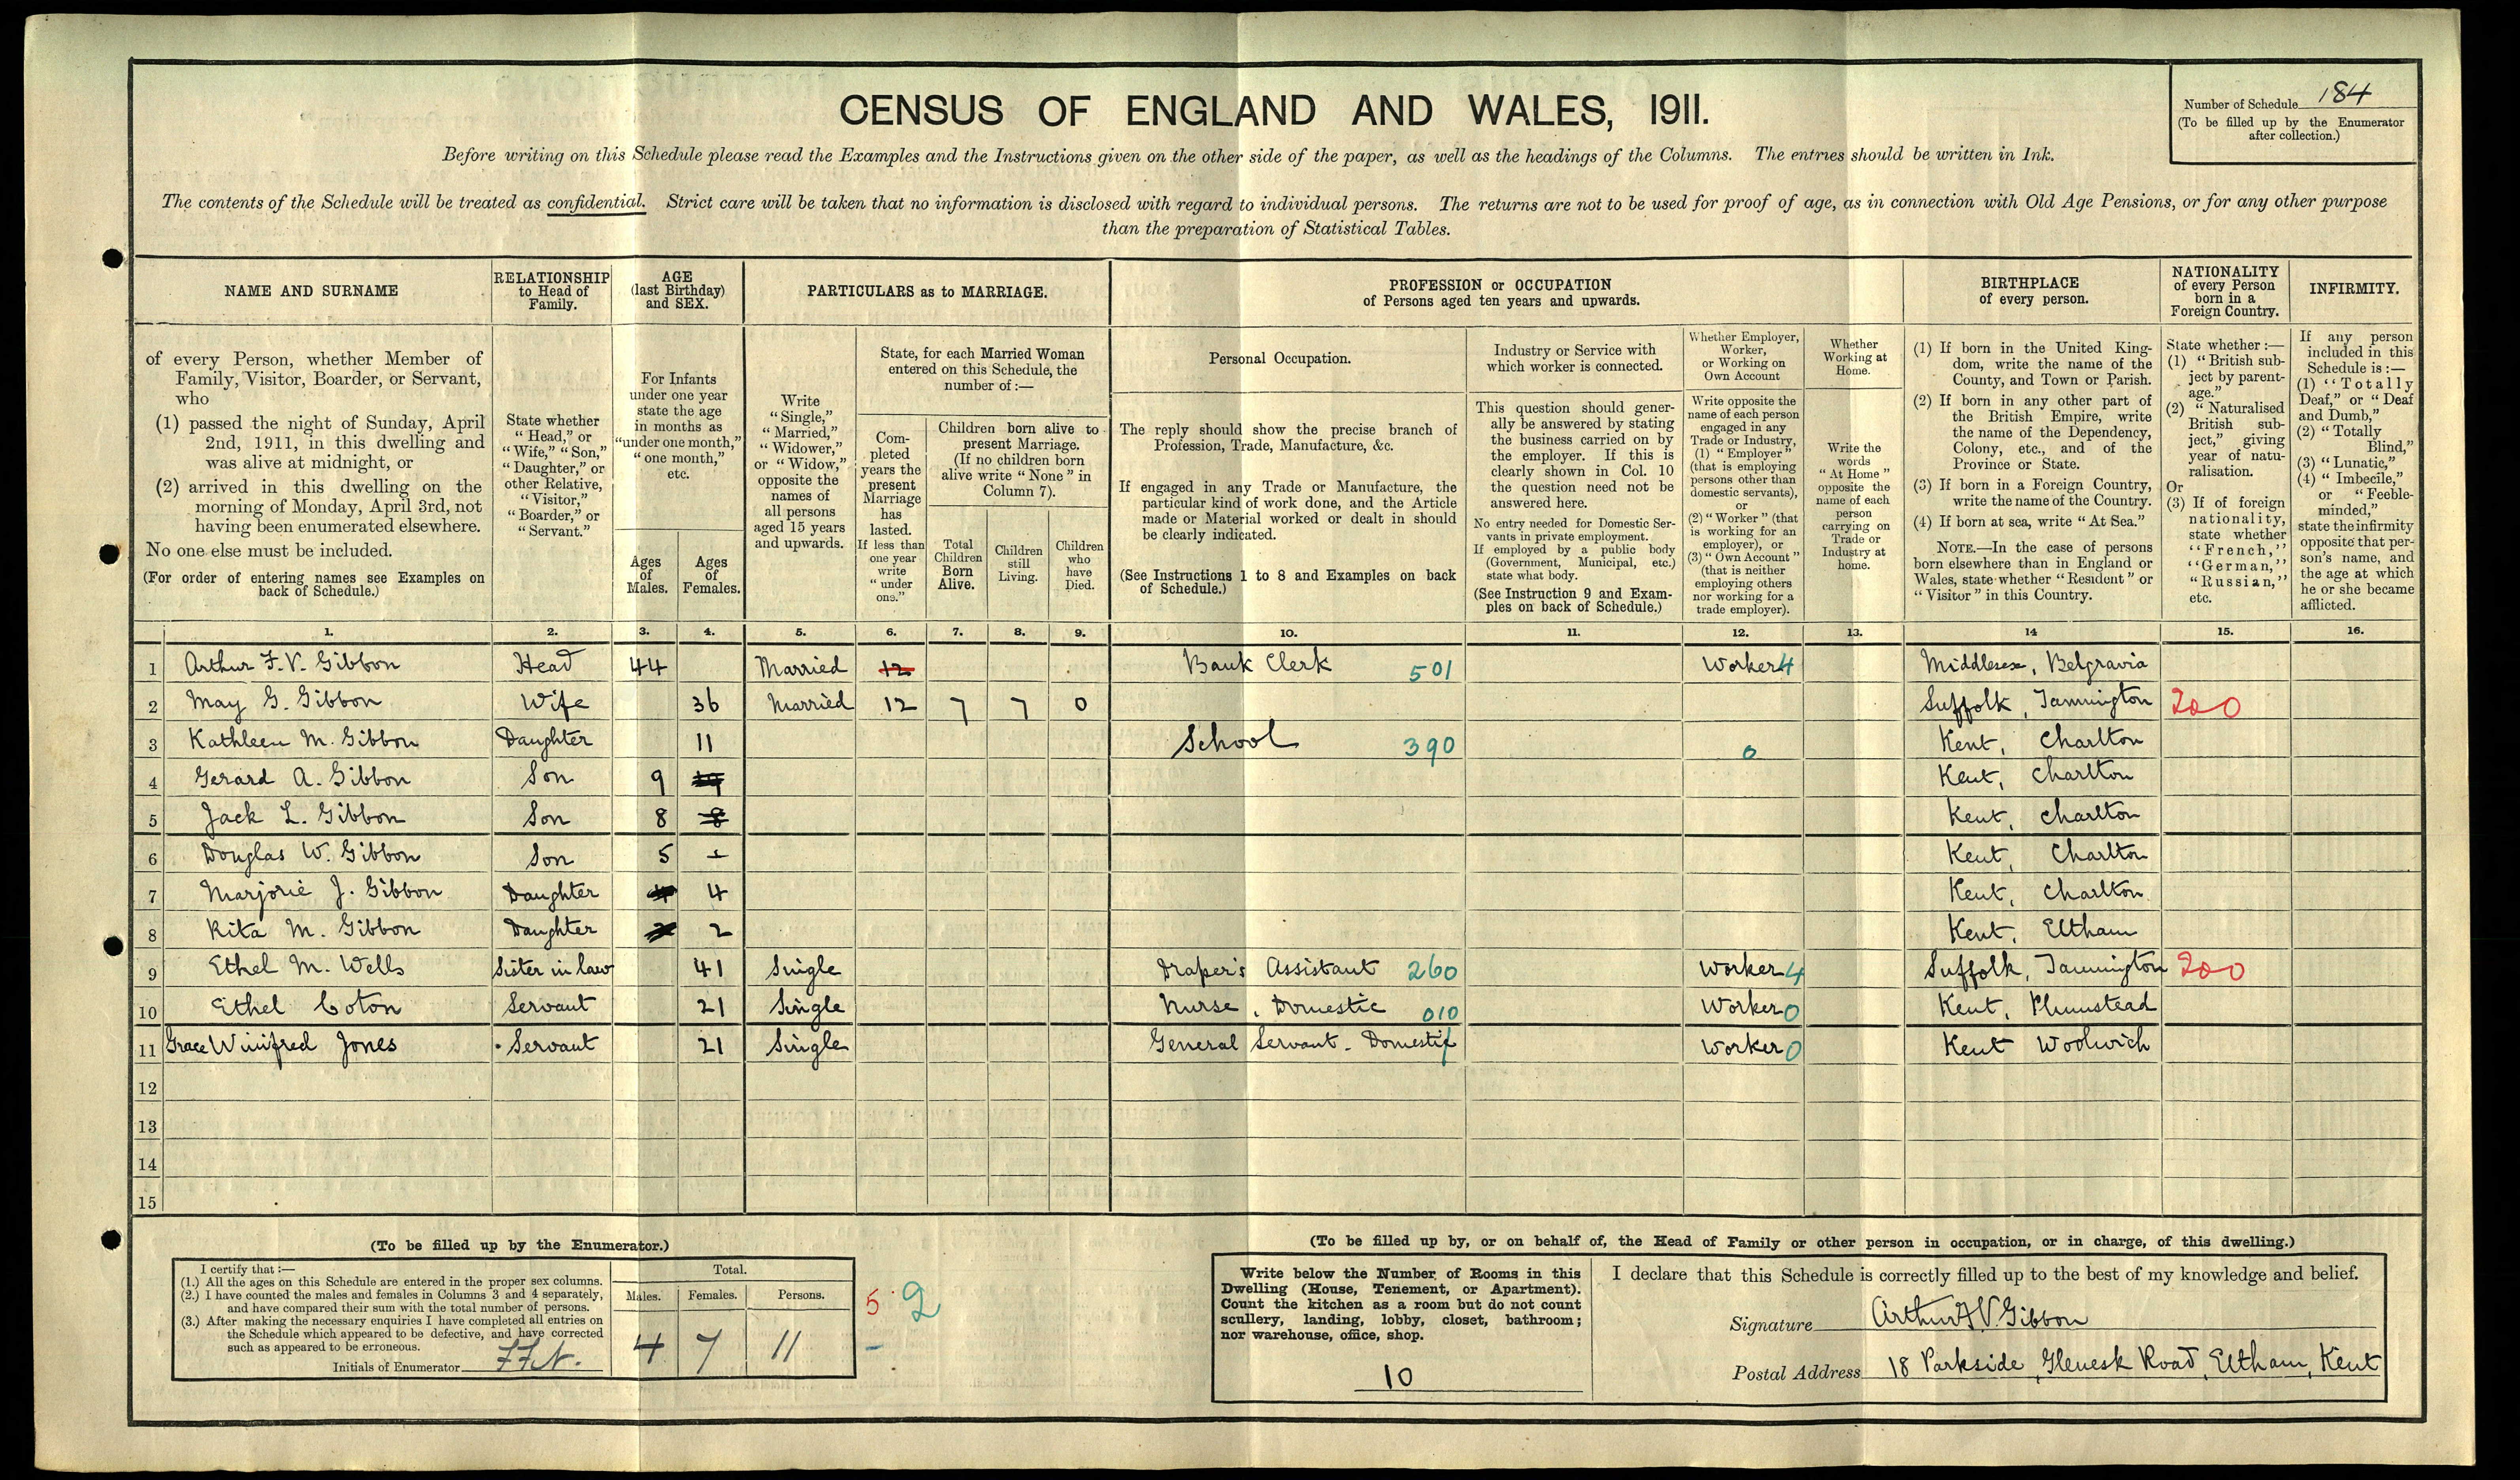 CENSUS OF ENGLAND AND WALES, 1911.
Number of Schedule 184
(To be filled up by the Enumerator
after collection.)
Before writing on this Schedule please read the Examples and the Instructions given on the other side of the paper, as well as the headings of the Columns. The entries should be written in Ink.
The contents of the Schedule will be treated as confidential. Strict care will be taken that no information is disclosed with regard to individual persons. The returns are not to be used for proof of age, as in connection with Old Age Pensions, or for any other purpose
than the preparation of Statistical Tables.
NAME AND SURNAME
of every Person, whether Member of
Family, Visitor, Boarder, or Servant,
who
(1) passed the night of Sunday, April
2nd, 1911, in this dwelling and
was alive at midnight, or
(2) arrived in this dwelling on the
morning of Monday, April 3rd, not
having been enumerated elsewhere.
No one else must be included.
(For order of entering names see Examples on
back of Schedule.)
RELATIONSHIP
to Head of
Family.
State whether
"Head," or
"Wife," "Son,"
"Daughter," or
other Relative,
"Visitor,"
"Boarder," or
"Servant."
AGE
(last Birthday)
and SEX.
For Infants
under one year
state the age
in months as
"under one month,"
"one month,"
etc.
Ages
of
Males.
Ages
of
Females.
PARTICULARS as to MARRIAGE.
Write
"Single,"
"Married,"
"Widower,"
or "Widow,"
opposite the
names of
all persons
aged 15 years
and upwards.
State, for each Married Woman
entered on this Schedule, the
number of :—
Com-
pleted
years the
present
Marriage
has
lasted.
If less than
one year
write
"under
one."
Children born alive to
present Marriage.
(If no children born
alive write "None" in
Column 7).
Total
Children
Born
Alive.
Children
still
Living.
Children
who
have
Died.
PROFESSION or OCCUPATION
of Persons aged ten years and upwards.
Personal Occupation.
The reply should show the precise branch of
Profession, Trade, Manufacture, &c.
If engaged in any Trade or Manufacture, the
particular kind of work done, and the Article
made or Material worked or dealt in should
be clearly indicated.
(See Instructions 1 to 8 and Examples on back
of Schedule.)
Industry or Service with
which worker is connected.
This question should gener-
ally be answered by stating
the business carried on by
the employer. If this is
clearly shown in Col. 10
the question need not be
answered here.
No entry needed for Domestic Ser-
vants in private employment.
If employed by a public body
(Government, Municipal, etc.)
state what body.
(See Instruction 9 and Exam-
ples on back of Schedule.)
Whether Employer,
Worker,
or Working on
Own Account
Write opposite the
name of each person
engaged in any
Trade or Industry,
(1) "Employer"
(that is employing
persons other than
domestic servants),
or
(2) "Worker" (that
is working for an
employer), or
(3) "Own Account"
(that is neither
employing others
nor working for a
trade employer).
Whether
Working at
Home.
Write the
words
"At Home"
opposite the
name of each
person
carrying on
Trade or
Industry at
home.
BIRTHPLACE
of every person.
(1) If born in the United King-
dom, write the name of the
County, and Town or Parish.
(2) If born in any other part of
the British Empire, write
the name of the Dependency,
Colony, etc., and of the
Province or State.
(3) If born in a Foreign Country,
write the name of the Country.
(4) If born at sea, write "At Sea."
NOTE.—In the case of persons
born elsewhere than in England or
Wales, state whether "Resident" or
"Visitor" in this Country.
NATIONALITY
of every Person
born in a
Foreign Country.
State whether :—
(1) "British sub-
ject by parent-
age."
(2) "Naturalised
British sub-
ject," giving
year of natu-
ralisation.
Or
(3) If of foreign
nationality,
state whether
"French,"
"German,"
"Russian,"
etc.
INFIRMITY.
If any person
included in this
Schedule is :—
(1) "Totally
Deaf," or "Deaf
and Dumb,"
(2) "Totally
Blind,"
(3) "Lunatic,"
(4) "Imbecile,"
or "Feeble-
minded,"
state the infirmity
opposite that per-
son's name, and
the age at which
he or she became
afflicted.
1. 2. 3. 4. 5. 6. 7. 8. 9. 10. 11. 12. 13. 14 15. 16.
1 Arthur F. V. Gibbon Head 44 Married 12 Bank Clerk 501 Worker 4 Middlesex, Belgravia
2 May G. Gibbon Wife 36 Married 12 7 7 0 Suffolk, Tannington 200
3 Kathleen M. Gibbon Daughter 11 School 390 0 Kent, Charlton
4 Gerard A. Gibbon Son 9 Kent, Charlton
5 Jack L. Gibbon Son 8 8 Kent, Charlton
6 Douglas W. Gibbon Son 5 Kent, Charlton
7 Marjorie J. Gibbon Daughter 4 4 Kent, Charlton
8 Rita M. Gibbon Daughter 2 2 Kent, Eltham
9 Ethel M. Wells Sister in law 41 Single Draper's Assistant 260 Worker 4 Suffolk, Tannington 200
10 Ethel Coton Servant 21 Single Nurse, Domestic 010 Worker 0 Kent, Plumstead
11 Grace Winifred Jones Servant 21 Single General Servant - Domestic Worker 0 Kent Woolwich
12
13
14
15
(To be filled up by the Enumerator.)
I certify that :—
(1.) All the ages on this Schedule are entered in the proper sex columns.
(2.) I have counted the males and females in Columns 3 and 4 separately,
and have compared their sum with the total number of persons.
(3.) After making the necessary enquiries I have completed all entries on
the Schedule which appeared to be defective, and have corrected
such as appeared to be erroneous.
Initials of Enumerator F.F.N.
Total.
Males. Females. Persons.
4 7 11
5 2
(To be filled up by, or on behalf of, the Head of Family or other person in occupation, or in charge, of this dwelling.)
Write below the Number of Rooms in this
Dwelling (House, Tenement, or Apartment).
Count the kitchen as a room but do not count
scullery, landing, lobby, closet, bathroom;
nor warehouse, office, shop.
10
I declare that this Schedule is correctly filled up to the best of my knowledge and belief.
Signature Arthur F V Gibbon
Postal Address 18 Parkside, Glenesk Road, Eltham, Kent